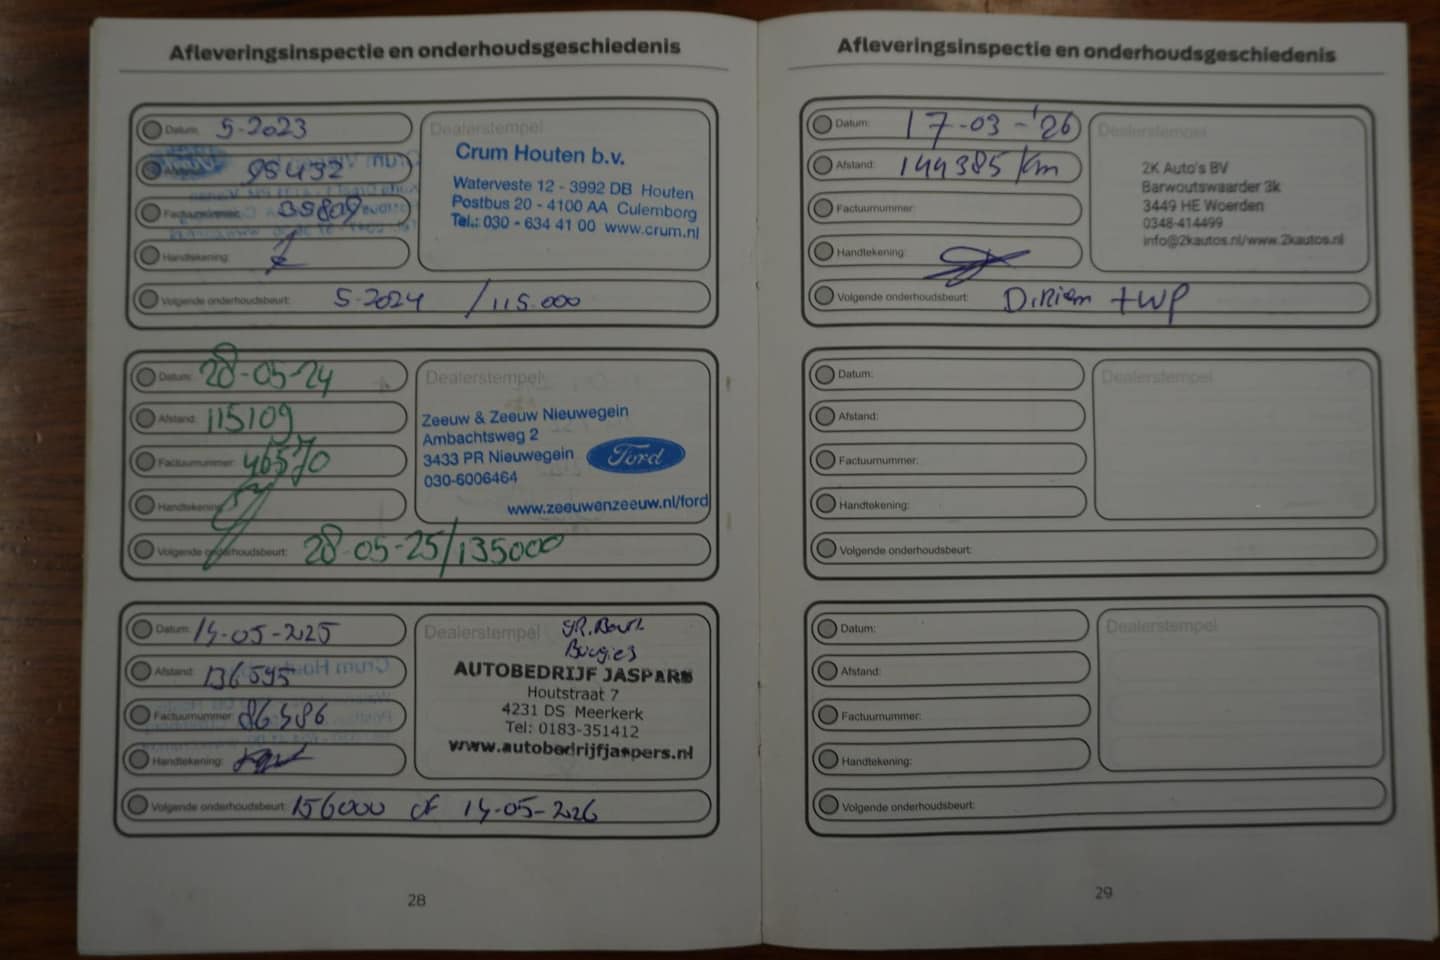 Afleveringsinspectie en onderhoudsgeschiedenis
Datum: 5-2023
Afstand: 95432
Factuurnummer: 35809
Handtekening:
Volgende onderhoudsbeurt: 5-2024 / 115.000
Dealerstempel
Crum Houten b.v.
Waterveste 12 - 3992 DB Houten
Postbus 20 - 4100 AA Culemborg
Tel.: 030 - 634 41 00 www.crum.nl
Datum: 28-05-24
Afstand: 115109
Factuurnummer: 46570
Handtekening:
Volgende onderhoudsbeurt: 28-05-25/135000
Dealerstempel
Zeeuw & Zeeuw Nieuwegein
Ambachtsweg 2
3433 PR Nieuwegein
030-6006464
Ford
www.zeeuwenzeeuw.nl/ford
Datum: 14-05-2025
Afstand: 136595
Factuurnummer: 86586
Handtekening:
Volgende onderhoudsbeurt: 156000 of 14-05-2026
Dealerstempel GR. Beurt
Bougies
AUTOBEDRIJF JASPERS
Houtstraat 7
4231 DS Meerkerk
Tel: 0183-351412
www.autobedrijfjaspers.nl
28
Afleveringsinspectie en onderhoudsgeschiedenis
Datum: 17-03-'26
Afstand: 149385 km
Factuurnummer:
Handtekening:
Volgende onderhoudsbeurt: D.Riem + WP
Dealerstempel
2K Auto's BV
Barwoutswaarder 3k
3449 HE Woerden
0348-414499
info@2kautos.nl/www.2kautos.nl
Datum:
Afstand:
Factuurnummer:
Handtekening:
Volgende onderhoudsbeurt:
Dealerstempel
Datum:
Afstand:
Factuurnummer:
Handtekening:
Volgende onderhoudsbeurt:
Dealerstempel
29